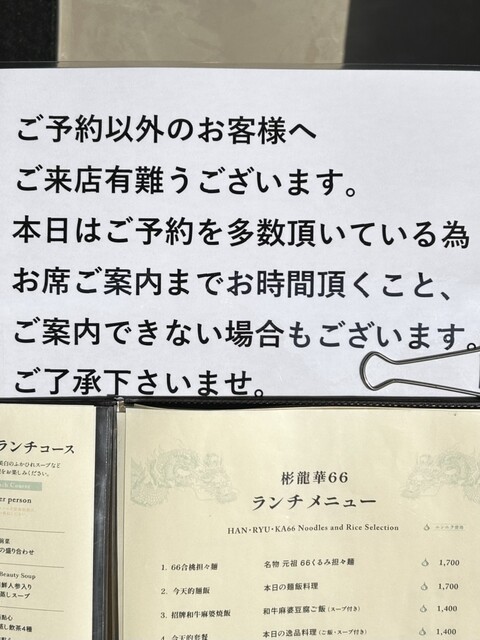 ご予約以外のお客様へ
ご来店有難うございます。
本日はご予約を多数頂いている為
お席ご案内までお時間頂くこと、
ご案内できない場合もございます。
ご了承下さいませ。
ランチコース
er person
の盛り合わせ
Beauty Soup
蒸しスープ
彬龍華66
ランチメニュー
HAN・RYU・KA66 Noodles and Rice Selection
1. 66合桃担々麺 名物 元祖 66くるみ担々麺 1,700
2. 今天的麺飯 本日の麺飯料理 1,700
3. 招牌和牛麻婆焼飯 和牛麻婆豆腐ご飯 (スープ付き) 1,400
4. 今天的套餐 本日の逸品料理 (ご飯・スープ付き) 1,400